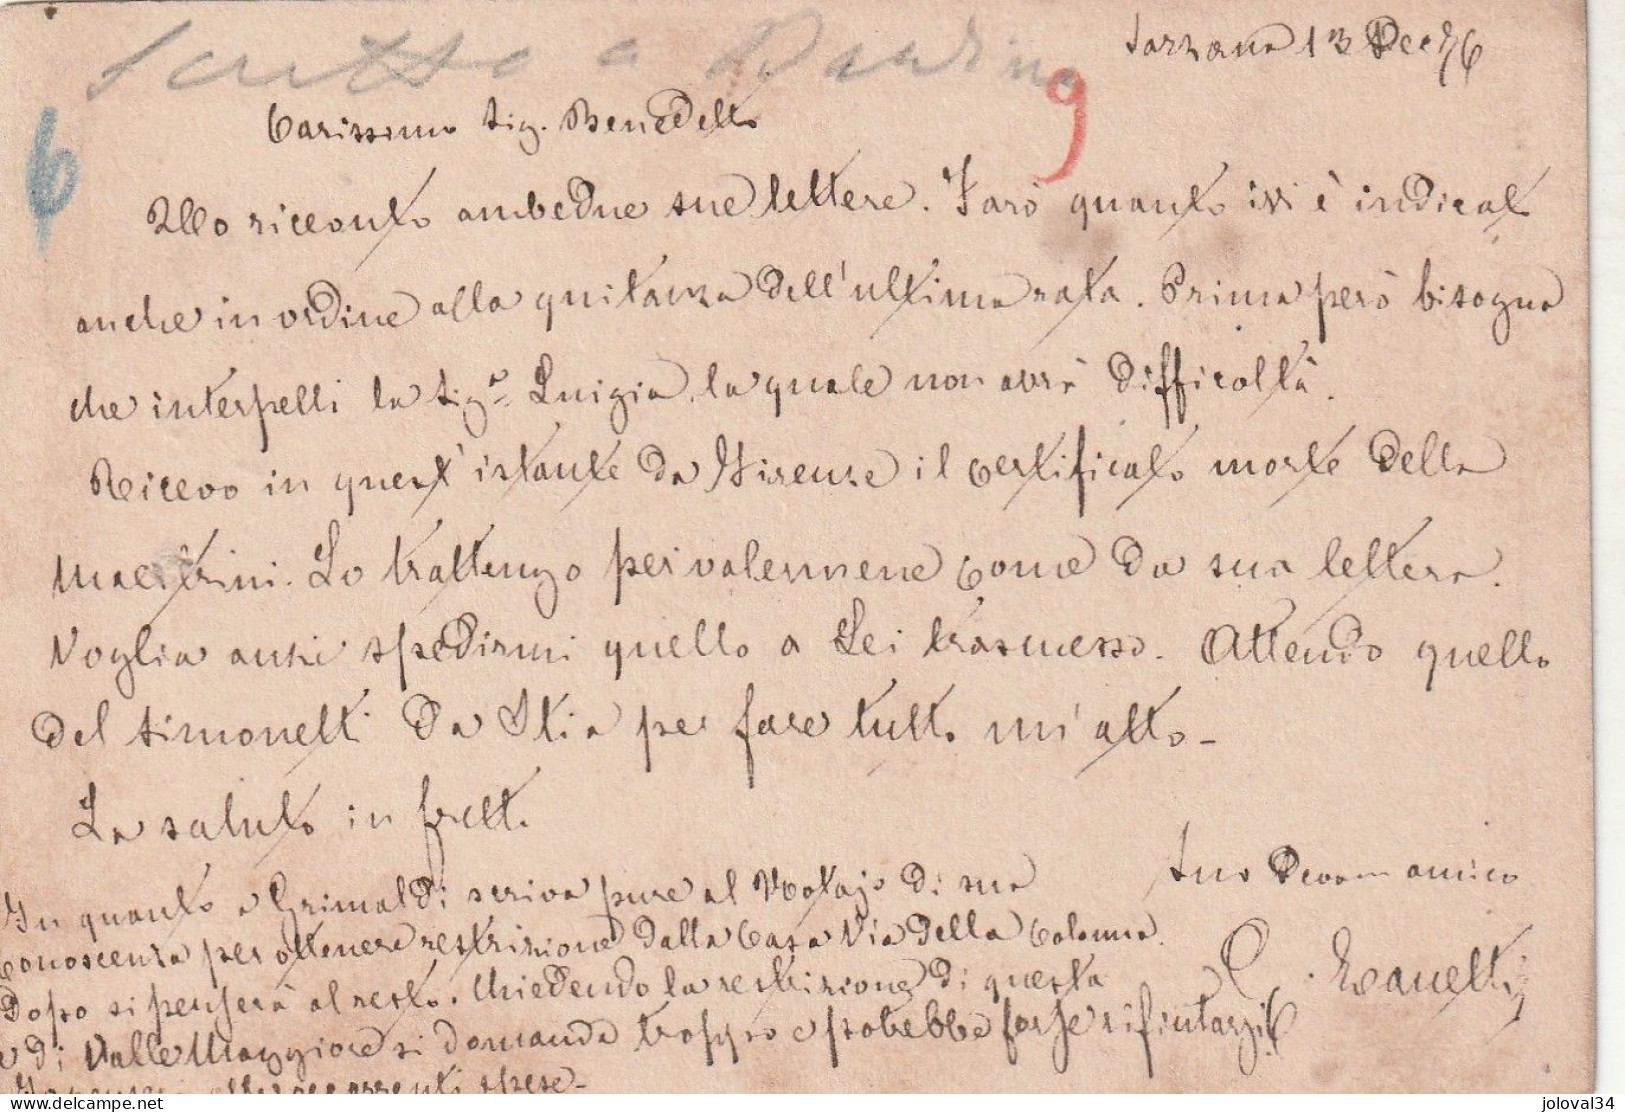 Scritto a
Sarzana 13 Dec 76
9
6
Carissimo Sig. Benedetto
Ho riscontro ambedue sue lettere. Farò quanto ivi è indicato
anche in ordine alla quitanza dell'ultima rata. Prima però bisogna
che interpelli la Sigª Luigia, la quale non avrà difficoltà.
Ricevo in quest'istante da Firenze il certificato morte della
Maestrini. Lo trattengo per valermene come da sua lettera.
Voglia anzi spedirmi quello a Lei trasmesso. Attendo quello
del Simonetti da Stia per fare tutto un'atto -
La saluto in fretta
Suo Devom amico
In quanto a Grimaldi scriva pure al Notajo di sua
conoscenza per ottenere restrizione dalla Casa Via della Colonna.
Dopo si penserà al resto. Chiedendo la restrizione di questa
e di Valle Maggiore si domanda troppo e potrebbe forse rifiutarsi
C. Zanetti
alle occorrenti spese -
joloval34